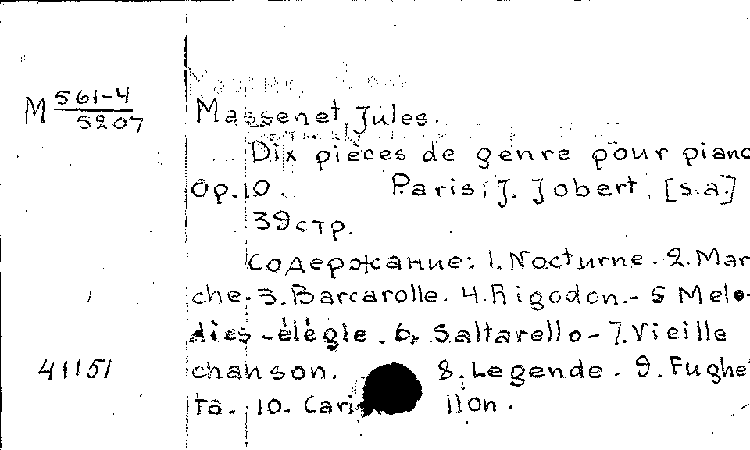 M 561-4
5207
Massenet, Jules.
Dix pièces de genre pour piano
Op.10. Paris, J. Jobert, [s.a.]
39 стр.
Содержание: 1. Nocturne. 2. Mar
che. 3. Barcarolle. 4. Rigodon.- 5 Melo-
dies-élégie. 6. Saltarello- 7. Vieille
41151 chanson. 8. Legende. 9. Fughe
ta. 10. Cari llon.